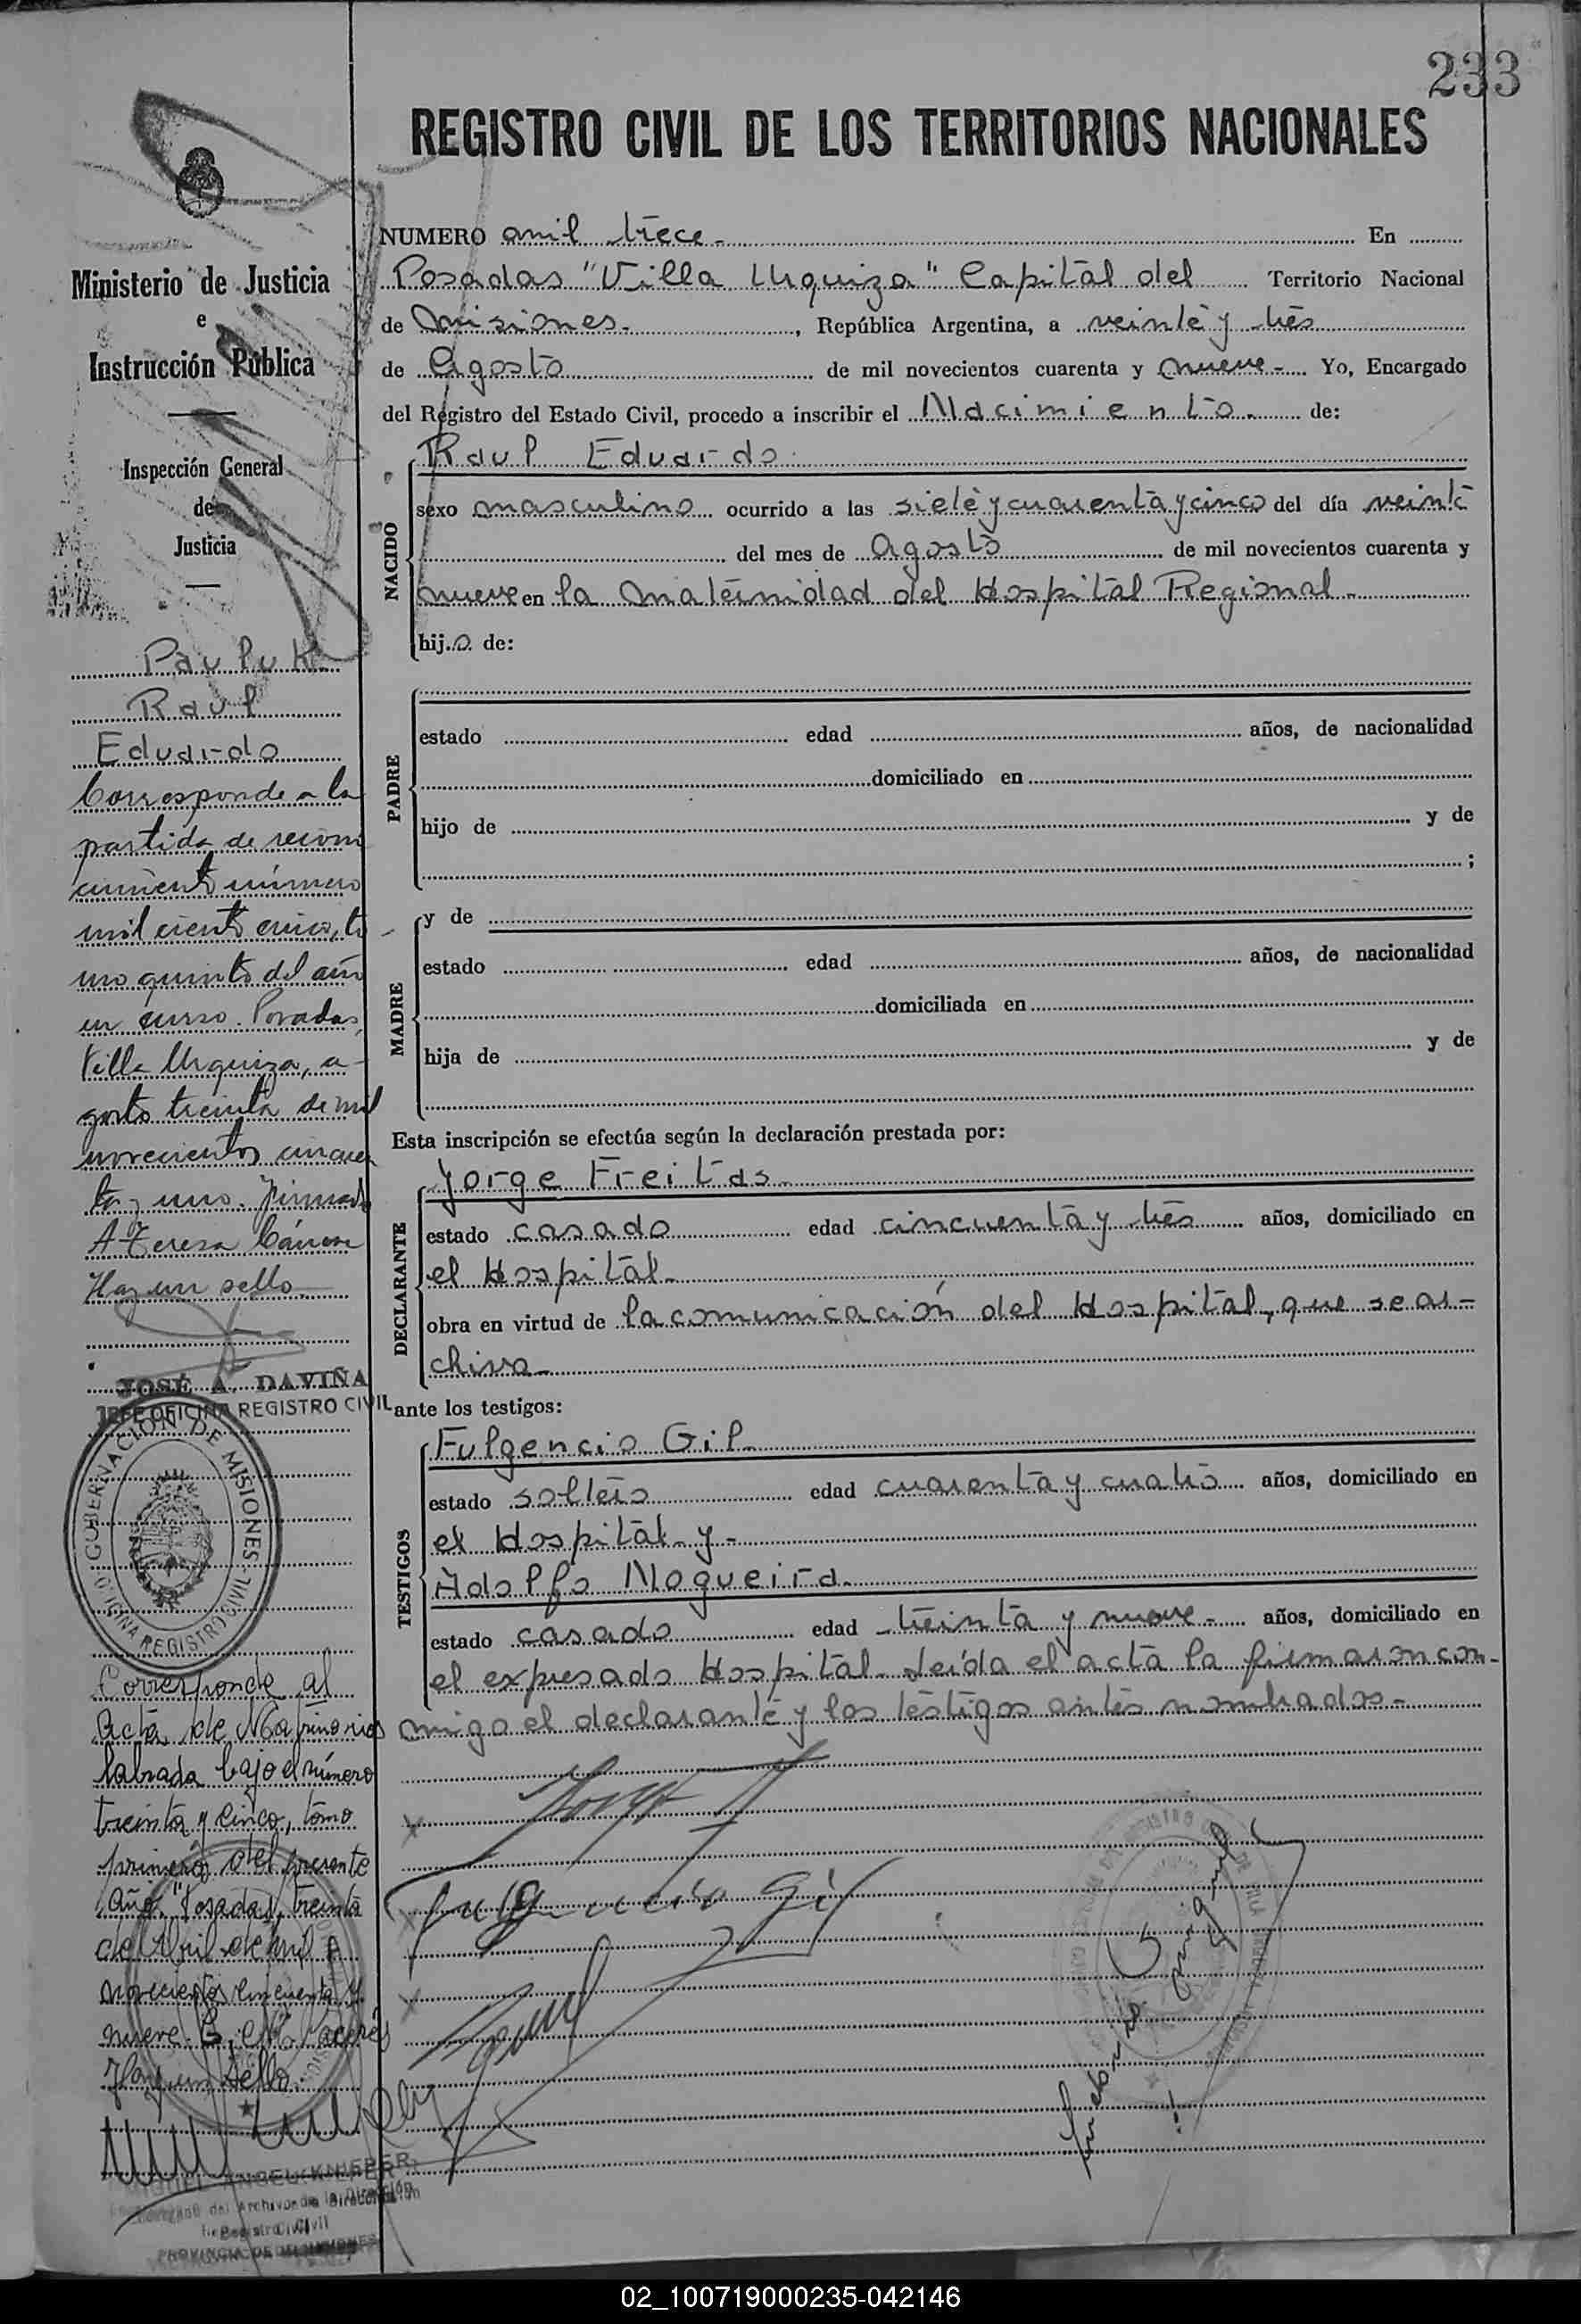 233
REGISTRO CIVIL DE LOS TERRITORIOS NACIONALES
NUMERO mil trece. En
Posadas "Villa Urquiza" Capital del Territorio Nacional
de Misiones. , República Argentina, a veinte y tres
de Agosto de mil novecientos cuarenta y nueve - Yo, Encargado
del Registro del Estado Civil, procedo a inscribir el Nacimiento. de:
Raul Eduardo
NACIDO
sexo masculino ocurrido a las siete y cuarenta y cinco del día veinte
del mes de Agosto de mil novecientos cuarenta y
nueve en la maternidad del Hospital Regional.
hijo de:
PADRE
estado edad años, de nacionalidad
domiciliado en
hijo de y de
;
MADRE
y de
estado edad años, de nacionalidad
domiciliada en
hija de y de
Esta inscripción se efectúa según la declaración prestada por:
DECLARANTE
Jorge Freitas
estado casado edad cincuenta y tres años, domiciliado en
el Hospital.
obra en virtud de la comunicación del Hospital, que se ar-
chiva.
ante los testigos:
TESTIGOS
Fulgencio Gil
estado soltero edad cuarenta y cuatro años, domiciliado en
el Hospital y -
Adolfo Nogueira.
estado casado edad treinta y nueve - años, domiciliado en
el expresado Hospital. Leída el acta la firmaron con-
migo el declarante y los testigos antes nombrados.
Fulgencio Gil
Ministerio de Justicia
e
Instrucción Pública
Inspección General
de
Justicia
Pauluk
Raul
Eduardo
Corresponde a la
partida de recono
cimiento número
mil ciento cinco, to
mo quinto del año
en curso. Posadas,
Villa Urquiza, a-
gosto treinta de mil
novecientos cincuen
ta y uno. Firmado
A. Teresa
Hay un sello.
JOSÉ A. DAVIÑA
JEFE OFICINA REGISTRO CIVIL
GOBERNACION DE MISIONES
OFICINA REGISTRO CIVIL
Corresponde al
Acta de Matrimonios
labrada bajo el número
treinta y cinco, tomo
primero del presente
año. Posadas, treinta
de Abril de mil
novecientos cincuenta y
nueve. Cáceres
Hay un Sello.
MIGUEL ANGEL KNIEPER
del Archivo de la Dirección
Registro Civil
PROVINCIA DE MISIONES
02_100719000235-042146